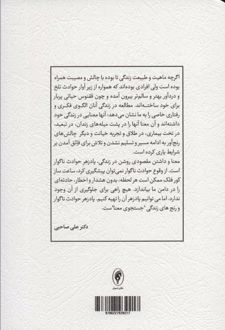 اگرچه ماهیت و طبیعت زندگی تا بوده با چالش و مصیبت همراه
بوده است ولی افرادی بوده‌اند که همواره از زیر آوار حوادث تلخ
و دردآور بهتر و سالم‌تر بیرون آمده و چون ققنوس حیاتی پربار
برای خود ساخته‌اند. مطالعه در زندگی آنان الگوی فکری و
رفتاری خاصی را به ما نشان می‌دهد. آنها معنایی در زندگی خود
داشته‌اند و آن معنا آنها را در پشت میله‌های زندان، در تبعید،
در تخت بیماری، در طلاق و تجربه خیانت و دیگر چالش‌های
رنج‌آور به ادامه مسیر و تسلیم نشدن و تلاش برای فائق آمدن بر
شرایط یاری کرده است.
معنا و داشتن مقصودی روشن در زندگی، پادزهر حوادث ناگوار
است. از وقوع حوادث ناگوار نمی‌توان پیشگیری کرد. ساعت ساز
کور فلک ممکن است هر لحظه، بدون هشدار و اخطار، حادثه‌ای
را در دامن ما بیاندازد. هیچ راهی برای جلوگیری از آن وجود
ندارد، اما می‌توانیم پادزهر آن را تهیه کنیم. پادزهر حوادث ناگوار
و رنج های زندگی "جستجوی معنا"ست.
دکتر علی صاحبی